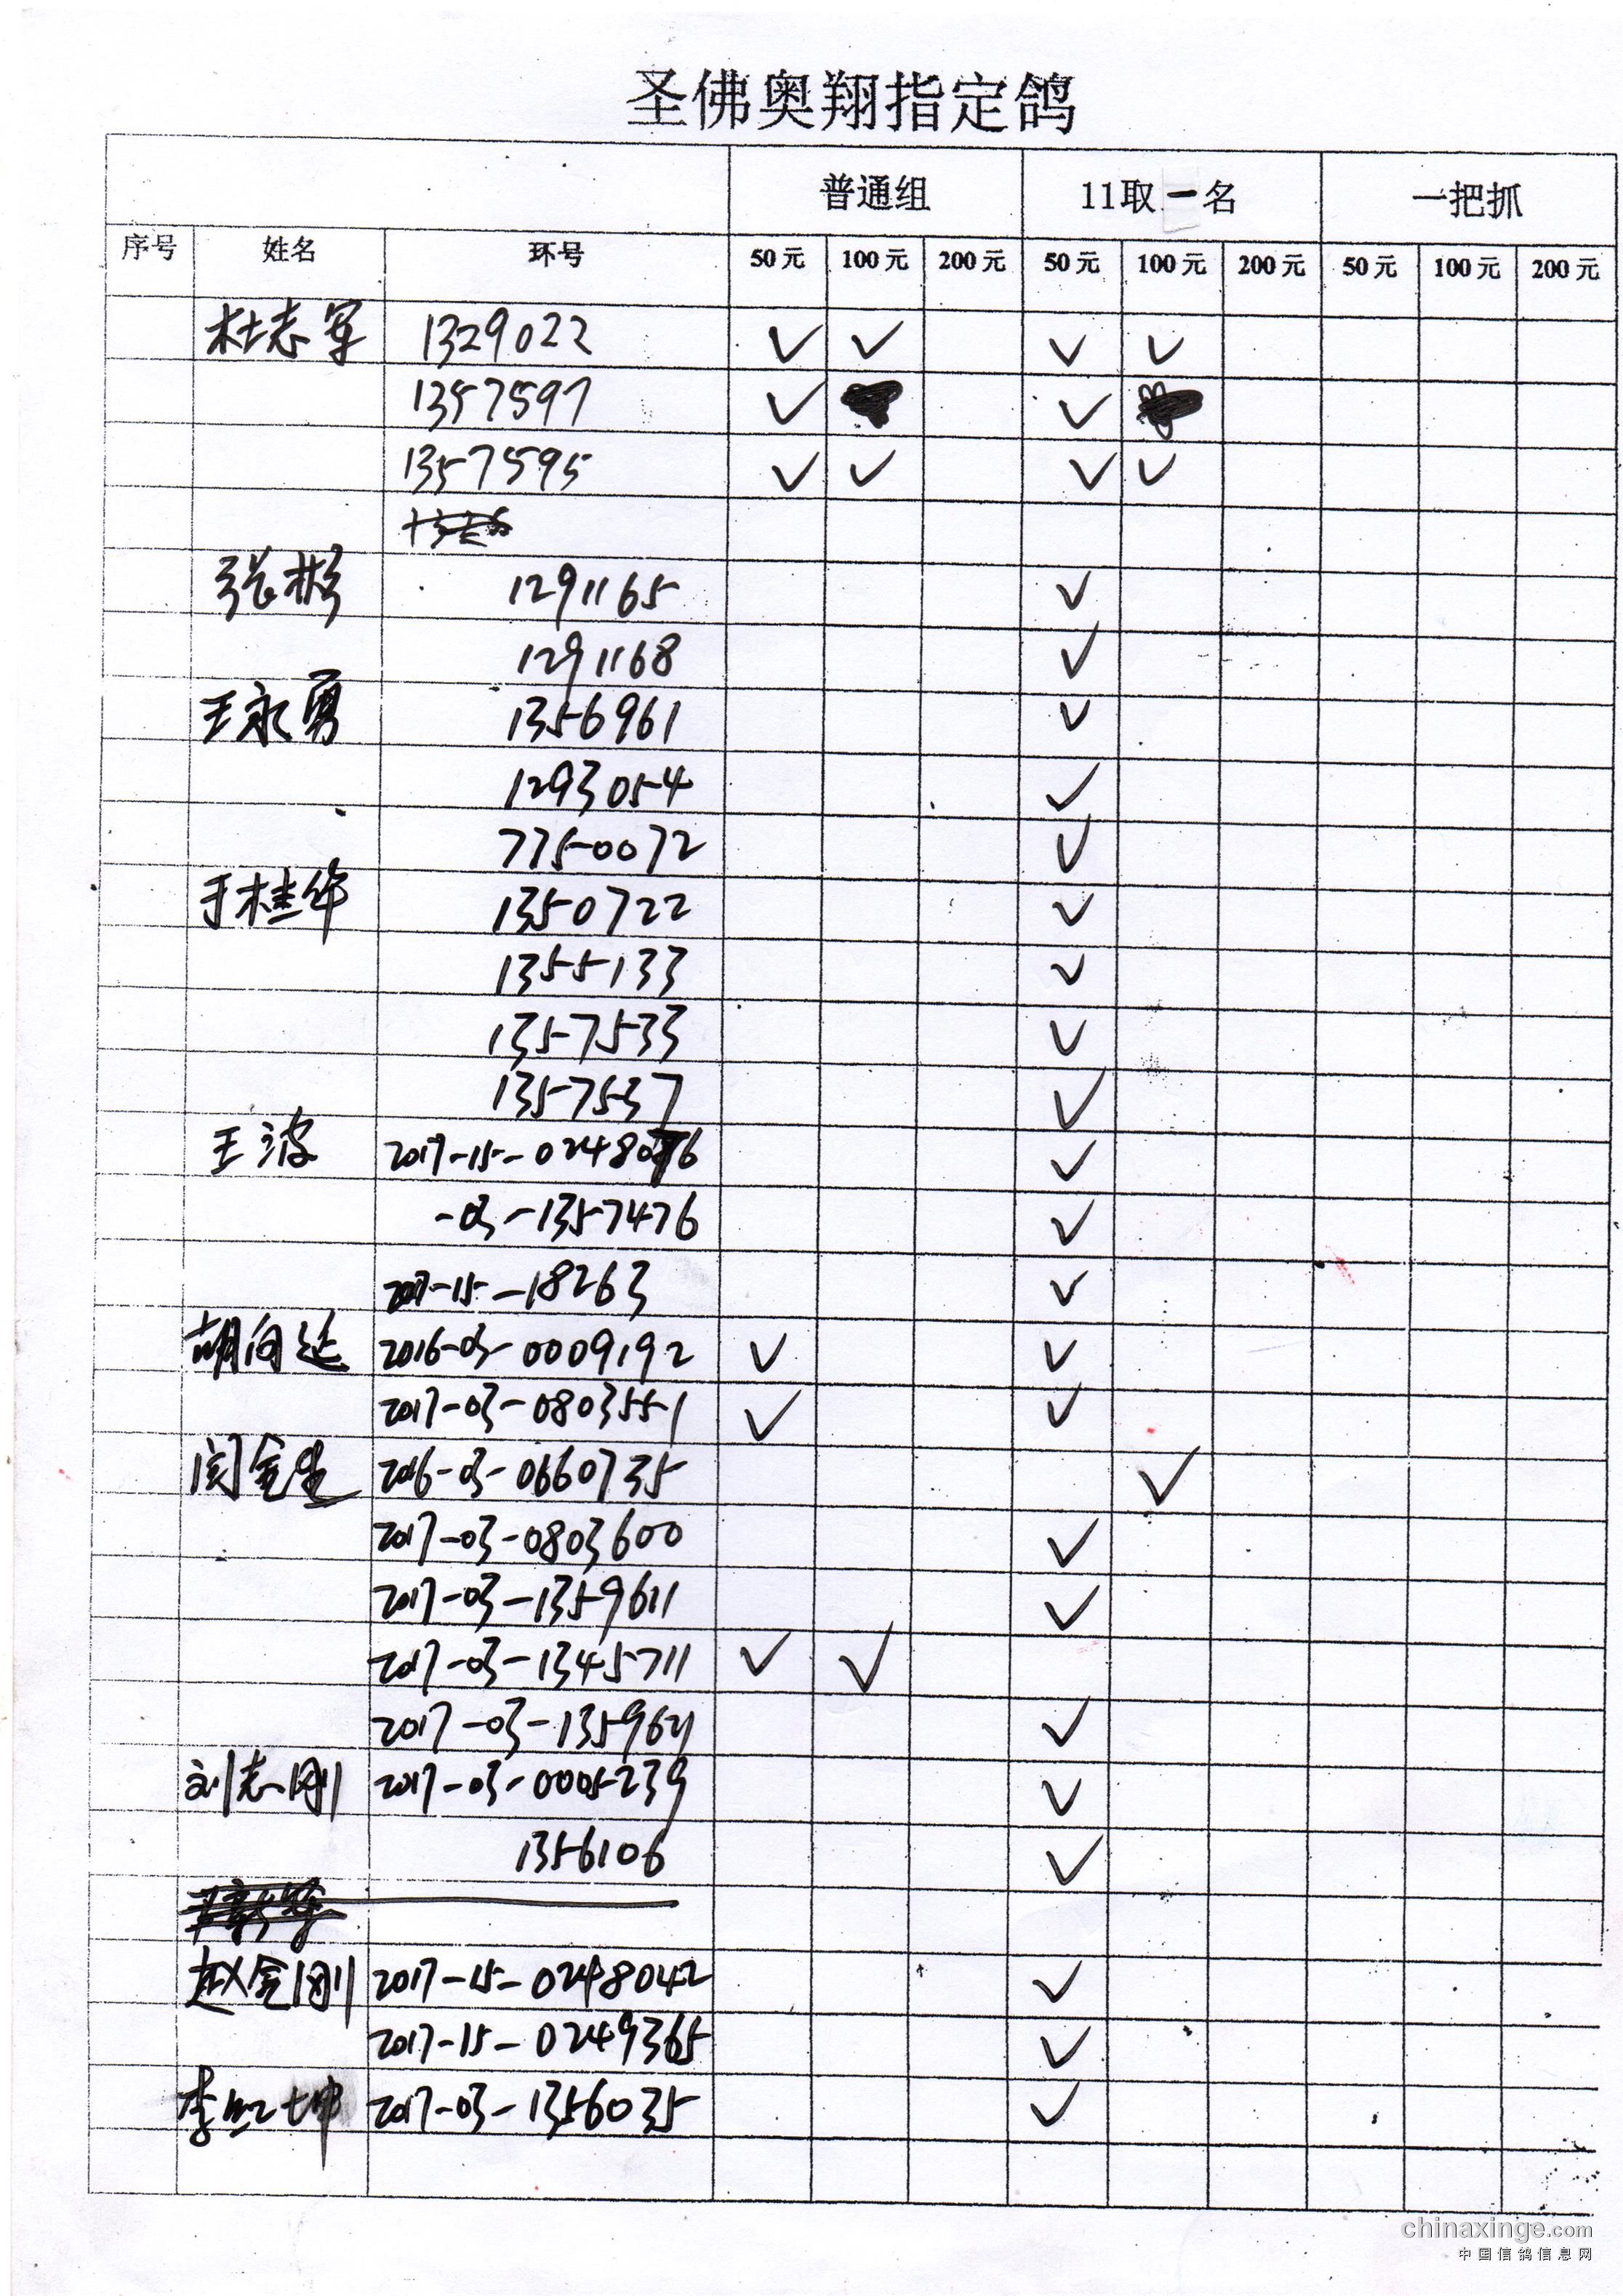 圣佛奥翔指定鸽
普通组 11取一名 一把抓
序号 姓名 环号 50元 100元 200元 50元 100元 200元 50元 100元 200元
杜志军 1329022 ✓ ✓ ✓ ✓
1357597 ✓ ✓
1357595 ✓ ✓ ✓ ✓
张彬 1291165 ✓
1291168 ✓
王永勇 1356961 ✓
1293054 ✓
7750072 ✓
于桂华 1350722 ✓
1355133 ✓
1357533 ✓
1357537 ✓
王波 2017-15-0248076 ✓
-03-1357476 ✓
2017-15-18263 ✓
胡向延 2016-03-0009192 ✓ ✓
2017-03-0803551 ✓ ✓
2016-03-0660735 ✓
2017-03-0803600 ✓
2017-03-1359611 ✓
2017-03-1345711 ✓ ✓
2017-03-1359621 ✓
刘志刚 2017-03-0005239 ✓
1356106 ✓
赵金刚 2017-15-0248042 ✓
2017-15-0249365 ✓
2017-03-1356035 ✓
chinaxinge.com
中国信鸽信息网